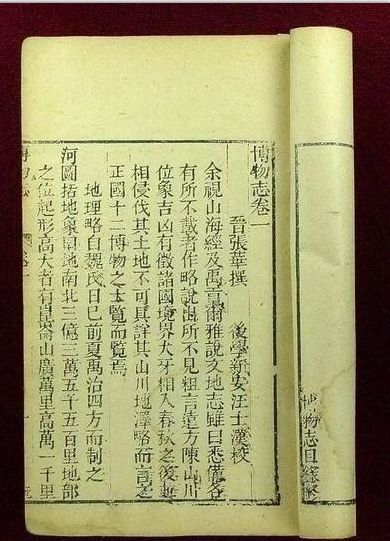 博物志卷一
晉張華撰 後學新安汪士漢校
余視山海經及禹貢爾雅說文地志雖曰悉備各
有所不載者作略說出所不見粗言遠方陳山川
位象吉凶有徵諸國境界犬牙相入春秋之後並
相侵伐其土地不可具詳其山川地澤略而言之
正國十二博物之士覽而覽焉
地理略自魏氏日已前夏禹治四方而制之
河圖括地象曰地南北三億三萬五千五百里地部
之位起形高大者有崑崙山廣萬里高萬一千里
博物志
博物志目錄終